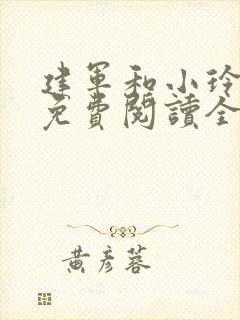 建军和小玲
免費閱讀全
黃彥蓉